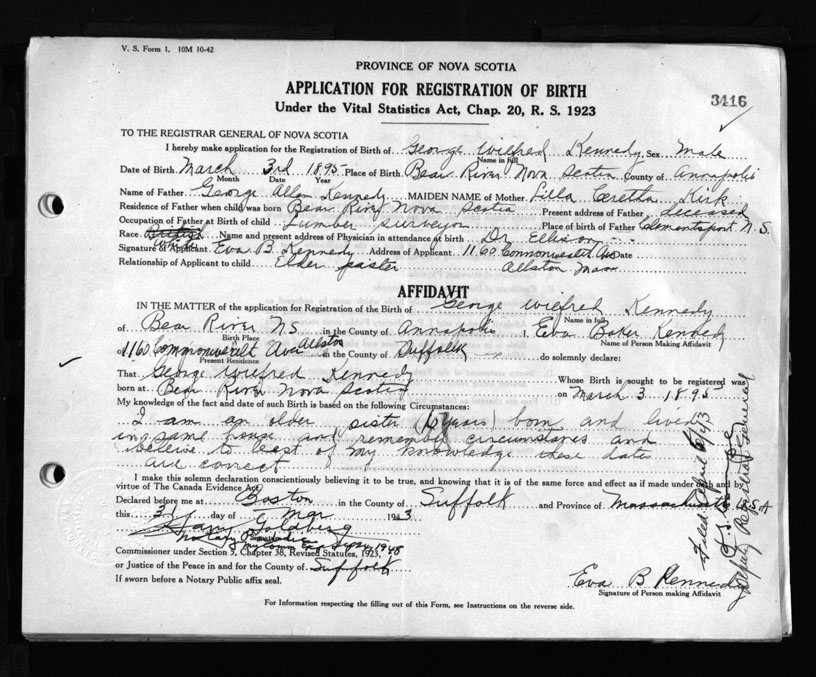 V. S. Form 1. 10M 10-42
PROVINCE OF NOVA SCOTIA
APPLICATION FOR REGISTRATION OF BIRTH
3416
Under the Vital Statistics Act, Chap. 20, R. S. 1923
TO THE REGISTRAR GENERAL OF NOVA SCOTIA
I hereby make application for the Registration of Birth of George Wilfred Kennedy Sex Male
Name in full
Date of Birth March 3rd 1895 Place of Birth Bear River Nova Scotia County of Annapolis
Month Date Year
Name of Father George Allan Kennedy MAIDEN NAME of Mother Lilla Ceretha Kirk
Residence of Father when child was born Bear River Nova Scotia Present address of Father deceased
Occupation of Father at Birth of child Lumber Surveyor Place of birth of Father Clementsport N.S.
Race British Name and present address of Physician in attendance at birth Dr Ellison
White
Signature of Applicant Eva B. Kennedy Address of Applicant 1160 Commonwealth Ave Date
Relationship of Applicant to child Elder sister Allston Mass
AFFIDAVIT
IN THE MATTER of the application for Registration of the Birth of George Wilfred Kennedy
Name in full
of Bear River NS in the County of Annapolis I, Eva Baker Kennedy
Birth Place Name of Person Making Affidavit
of 1160 Commonwealt Ave Allston in the County of Suffolk do solemnly declare:
Present Residence
That George Wilfred Kennedy Whose Birth is sought to be registered was
born at Bear River Nova Scotia on March 3 1895
My knowledge of the fact and date of such Birth is based on the following Circumstances:
I am an older sister years) born and lived
in same house and remember circumstances and
believe to best of my knowledge these dates
are correct
I make this solemn declaration conscientiously believing it to be true, and knowing that it is of the same force and effect as if made under oath and by
virtue of The Canada Evidence Act.
Declared before me at Boston in the County of Suffolk and Province of Massachusetts USA
this 31 day of Mar 1943
Harry Goldberg
Notary Public
Signature
my comm Exp 1948
Commissioner under Section 3, Chapter 38, Revised Statutes, 1923,
or Justice of the Peace in and for the County of Suffolk
If sworn before a Notary Public affix seal.
Eva B Kennedy
Signature of Person making Affidavit
For Information respecting the filling out of this Form, see Instructions on the reverse side.
Filed April 6/43
Deputy Registrar General